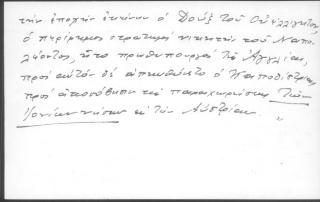 την εποχήν εκείνην ο Δουξ του Ουέλλιγκτον,
ο περίφημος στρατηγός νικητής του Ναπο-
λέοντος, ήτο πρωθυπουργός της Αγγλίας,
προς αυτόν δε απηυθύνετο ο Καποδίστριας
προς αποσόβησιν της παραχωρήσεως Των
Ιονίων νήσων εις την Αυστρίαν. "